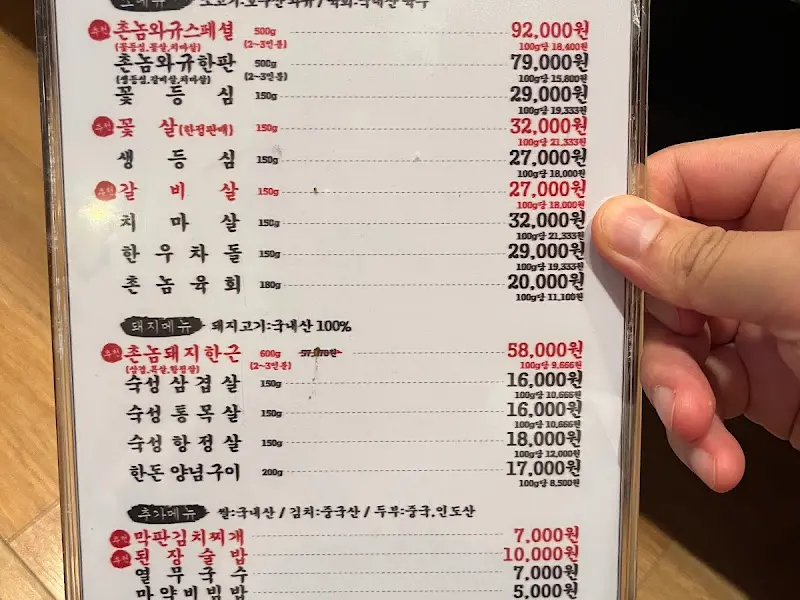 소고기:호주산 와규 / 육회:국내산 육우
추천 촌놈와규스페셜 500g 92,000원
(꽃등심,꽃살,치마살) (2~3인분) 100g당 18,400원
촌놈와규한판 500g 79,000원
(생등심,갈비살,치마살) (2~3인분) 100g당 15,800원
꽃등심 150g 29,000원
100g당 19,333원
추천 꽃살(한정판매) 150g 32,000원
100g당 21,333원
생등심 150g 27,000원
100g당 18,000원
추천 갈비살 150g 27,000원
100g당 18,000원
치마살 150g 32,000원
100g당 21,333원
한우차돌 150g 29,000원
100g당 19,333원
촌놈육회 180g 20,000원
100g당 11,100원
돼지메뉴 돼지고기:국내산 100%
추천 촌놈돼지한근 600g 58,000원
(삼겹,목살,항정살) (2~3인분) 100g당 9,666원
숙성삼겹살 150g 16,000원
100g당 10,666원
숙성통목살 150g 16,000원
100g당 10,666원
숙성항정살 150g 18,000원
100g당 12,000원
한돈양념구이 200g 17,000원
100g당 8,500원
추가메뉴 쌀:국내산 / 김치:중국산 / 두부:중국,인도산
추천 막판김치찌개 7,000원
추천 된장술밥 10,000원
열무국수 7,000원
마약비빔밥 5,000원